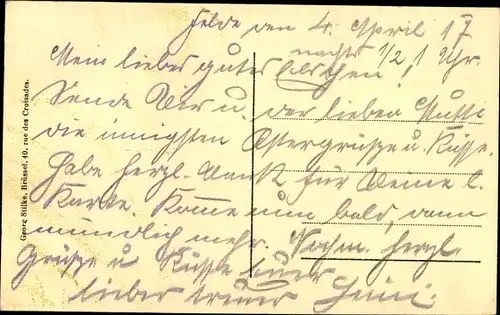 Felde den 4. April 17
nachts 1/2 1 Uhr.
Mein liebes gutes Elschen!
Sende Dir u. der lieben Mutti
die innigsten Ostergrüsse u. Küsse.
Habe herzl. Dank für Deine l.
Karte. Komme nun bald, dann
mündlich mehr. Nochm. herzl.
Grüsse u Küsse Euer
lieber treuer Heini.
Georg Stilke, Brüssel, 40, rue des Croisades.